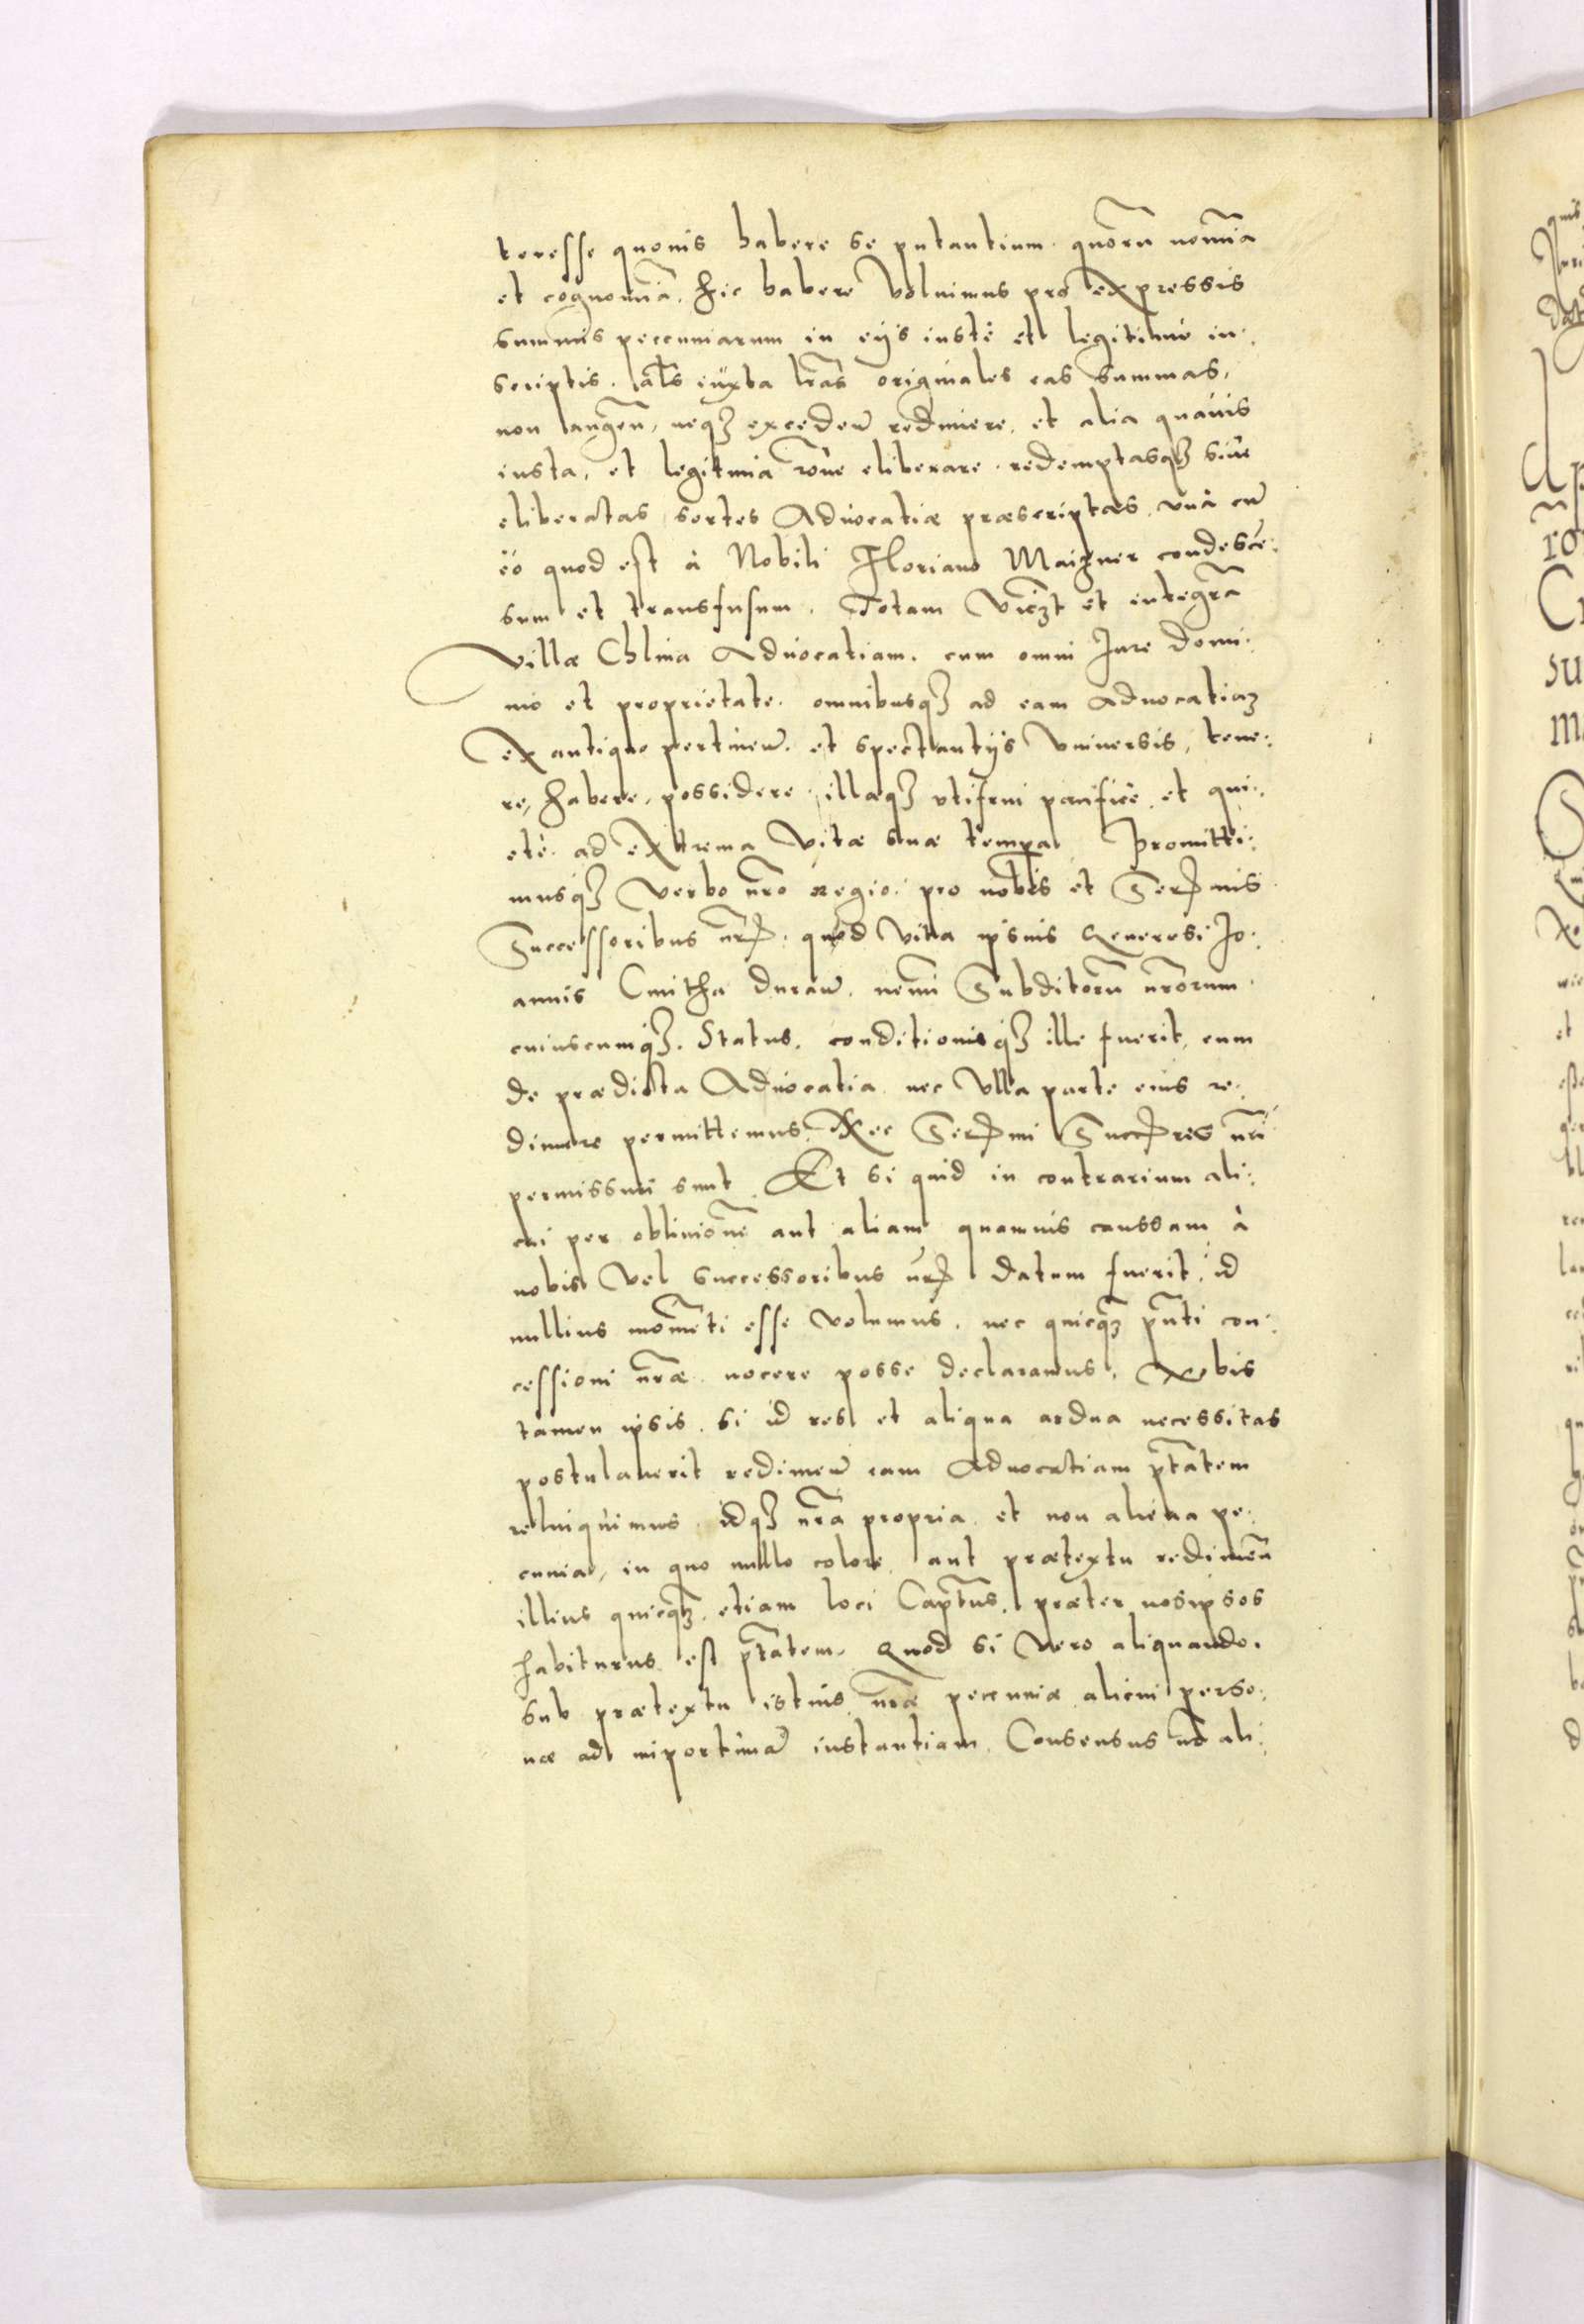 teresse quovis habere se putantium. quorũ nomĩa
et cognomĩa, hic habere Voluimus pro expressis
summis peccuniarum in eys iuste et legitime in:
scriptis. als iuxta lr̃as originales eas summas,
non augeñ, neqꝫ excedeñ redimere, et alia quavis
iusta, et legitima rõne eliberare. redemptasqꝫ sive
eliberatas sortes Advocatiæ præscriptæs, unà cũ
eo quod est à Nobili Floriano Maizner condesce:
sum et transfusum. Totam Viczt et integrã
Villæ Chlina Advocatiam. cum omni Jure Domi:
nio et proprietate. omnibusqꝫ ad eam Advocatiaꝫ
ex antiquo pertineñ. et spectantys Vniversis, tene:
re, habere, possidere. illaqꝫ utifrui pacificè et qui:
etè. ad extrema Vitæ suæ tempa Promitti:
musqꝫ Verbo nr̃o regio. pro nobis et Serᵐnis
Successoribus nr̃is. quod Vita ipsius Generosi Jo:
annis Cmitha durañ. nemĩ Subditorũ nr̃orum
cuiuscumqꝫ. Status. conditionisqꝫ ille fuerit, eum
de prædicta Advocatia nec Vlla parte eius re:
dimere permittemus, Nec Serᵐi Succres nr̃i
permissuri sunt. Et si quid in contrarium ali:
cui per oblivionẽ aut aliam quamvis caussam à
nobis Vel successoribus nr̃is datum fuerit, id
nullius momẽti esse Volumus. nec quicqꝫ pñti con:
cessioni nr̃æ nocere posse declaramus. Nobis
tamen ipsis. si id res et aliqua ardua necessitas
postulaverit redimeñ eam Advocatiam ptãtem
relinquimus idqꝫ nr̃a propria. et non aliena pe:
cunia, in quo nullo colore, aut prætextu redimẽn
illius quicqꝫ. etiam loci Captñus. præter nosipsos
habiturus est ptãtem. Quod si Vero aliquando.
sub prætextu istius nr̃æ peccuniæ alicui perso:
næ ad importunã instantiam. Consensus nr̃ ali: